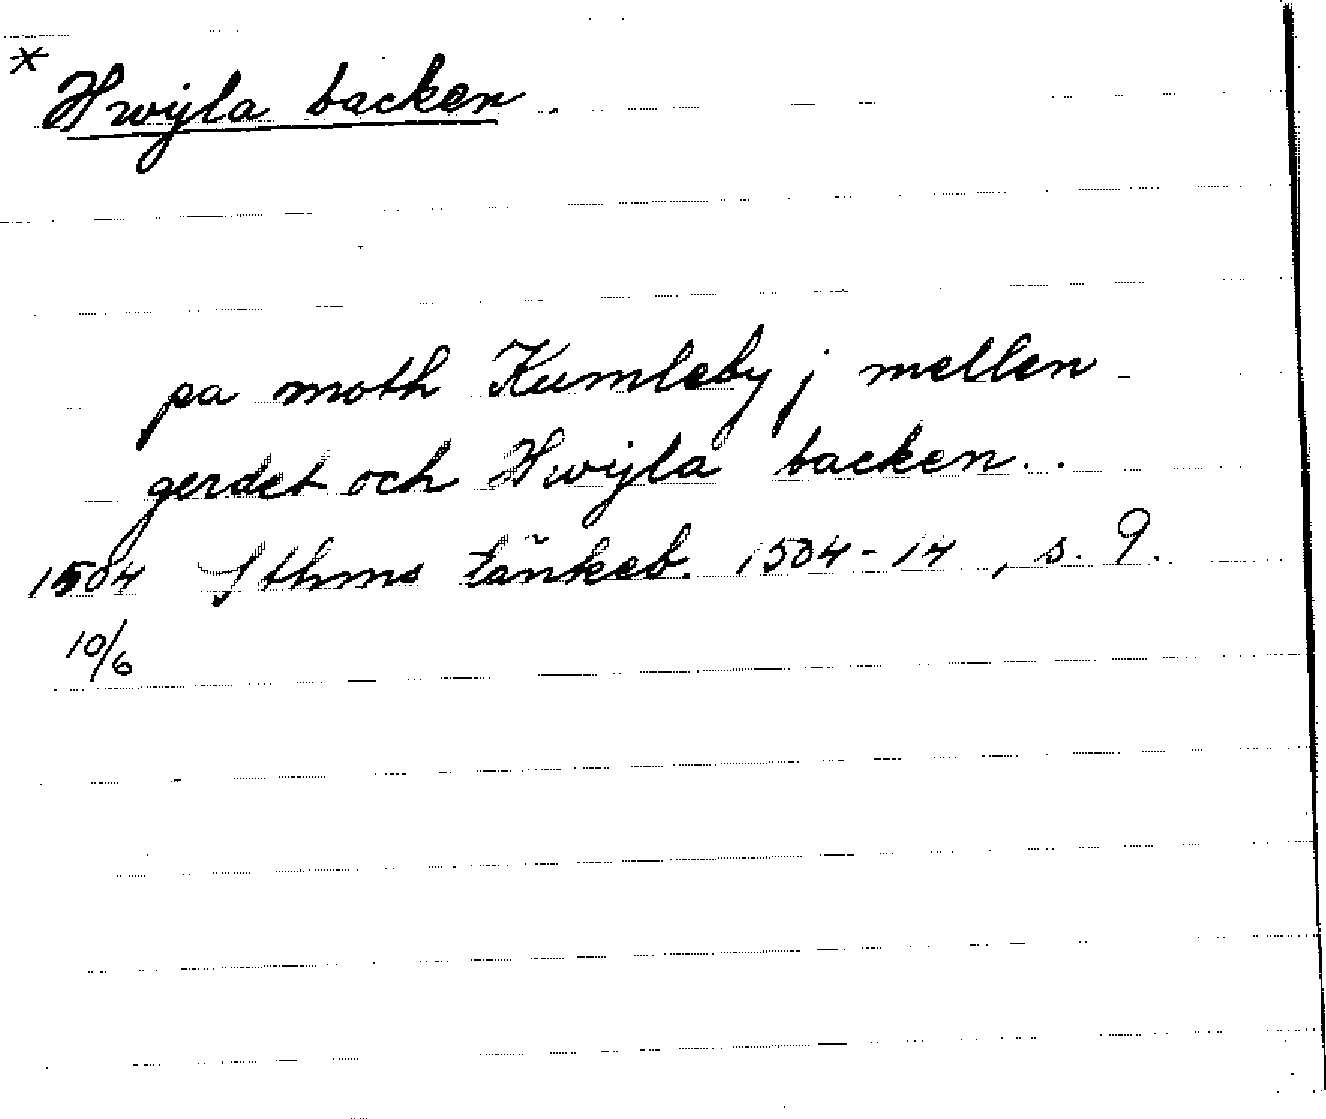 * Hwijla backen.
pa moth Kumleby j mellen
gerdet och Hwijla backen..
1504 Sthms tänkeb. 1504-14, s. 9.
10/6